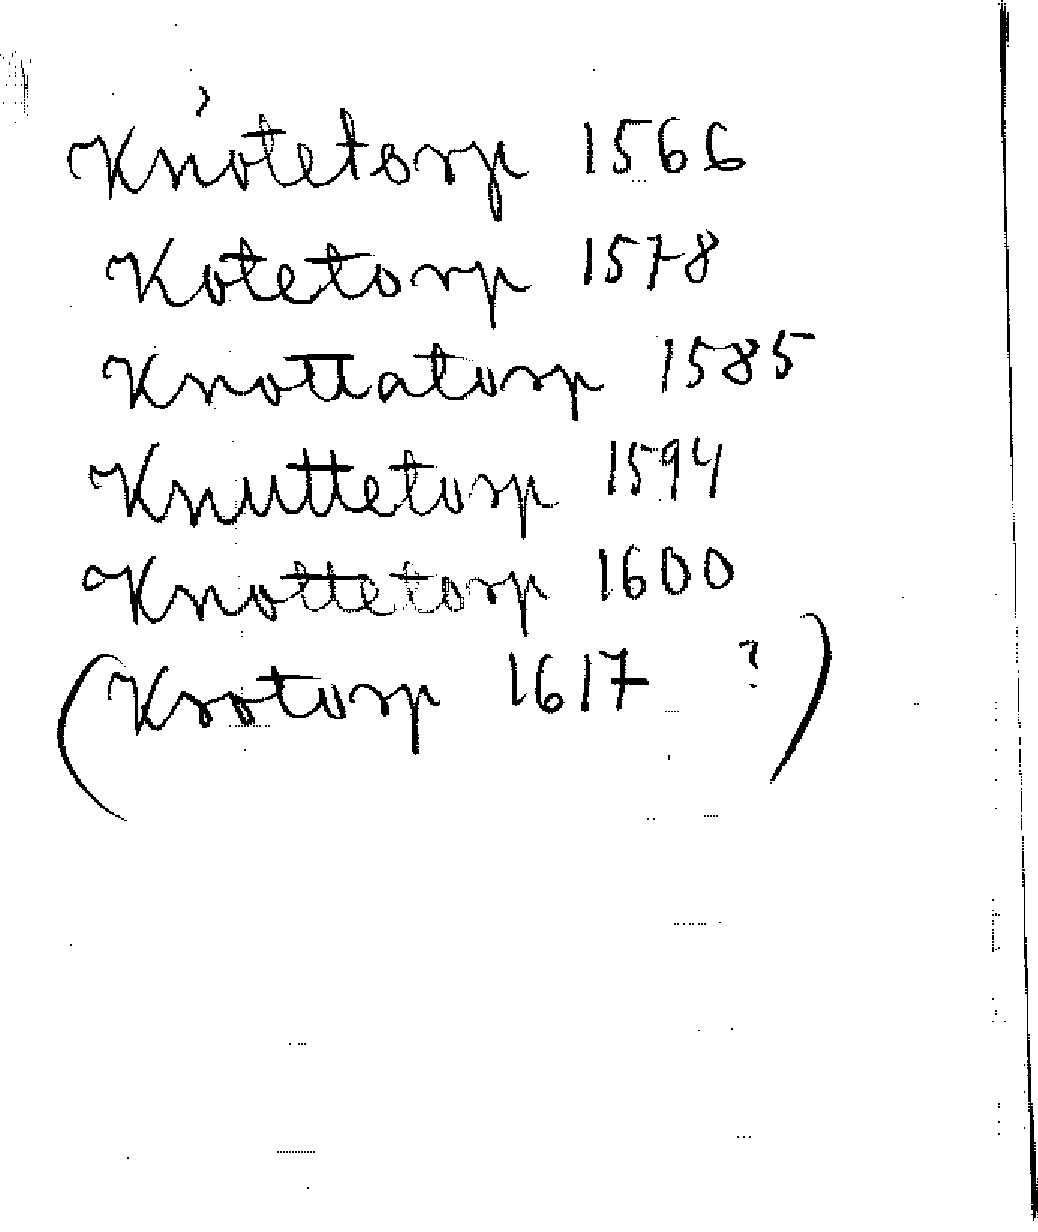 Knotetorp 1566
Kotetorp 1578
Knottatorp 1585
Knuttetorp 1594
Knottetorp 1600
(Krotorp 1617 ?)